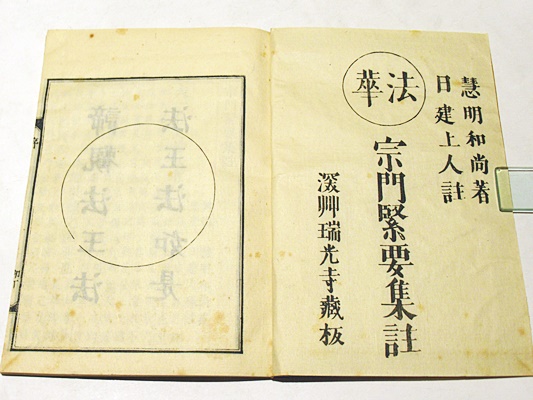 慧明和尚著
日建上人註
法華
宗門緊要集註
深艸瑞光寺藏板
諦觀法王法
法王法如是